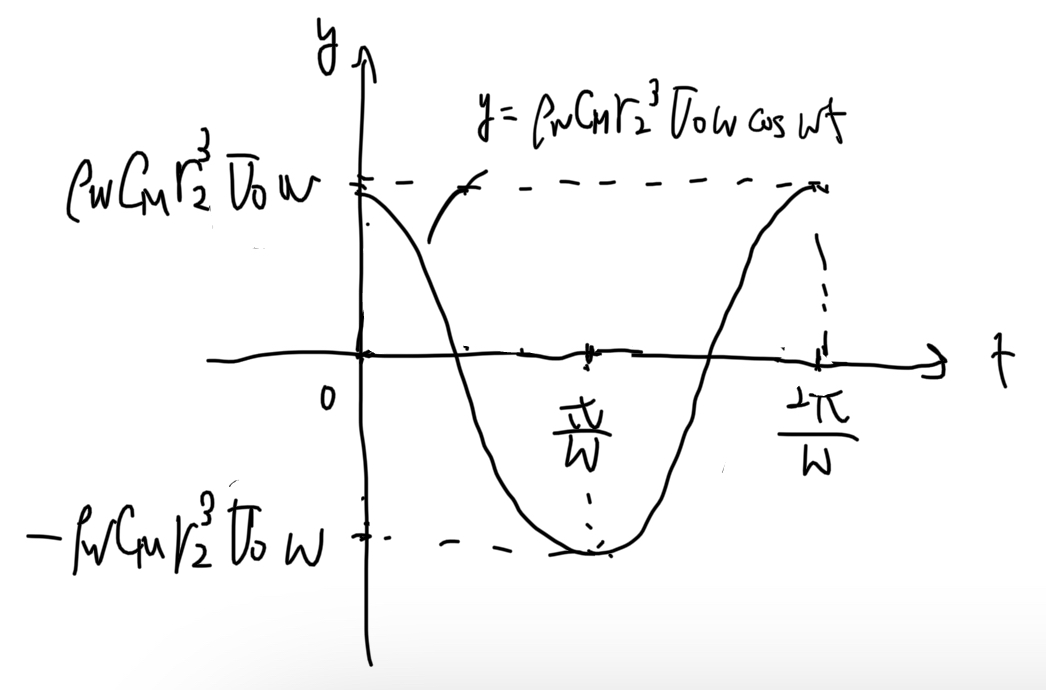 y
y = ρ_w C_M r_2^3 U̅_0 ω cos ωt
ρ_w C_M r_2^3 U̅_0 ω
t
0
π/ω
2π/ω
-ρ_w C_M r_2^3 U̅_0 ω